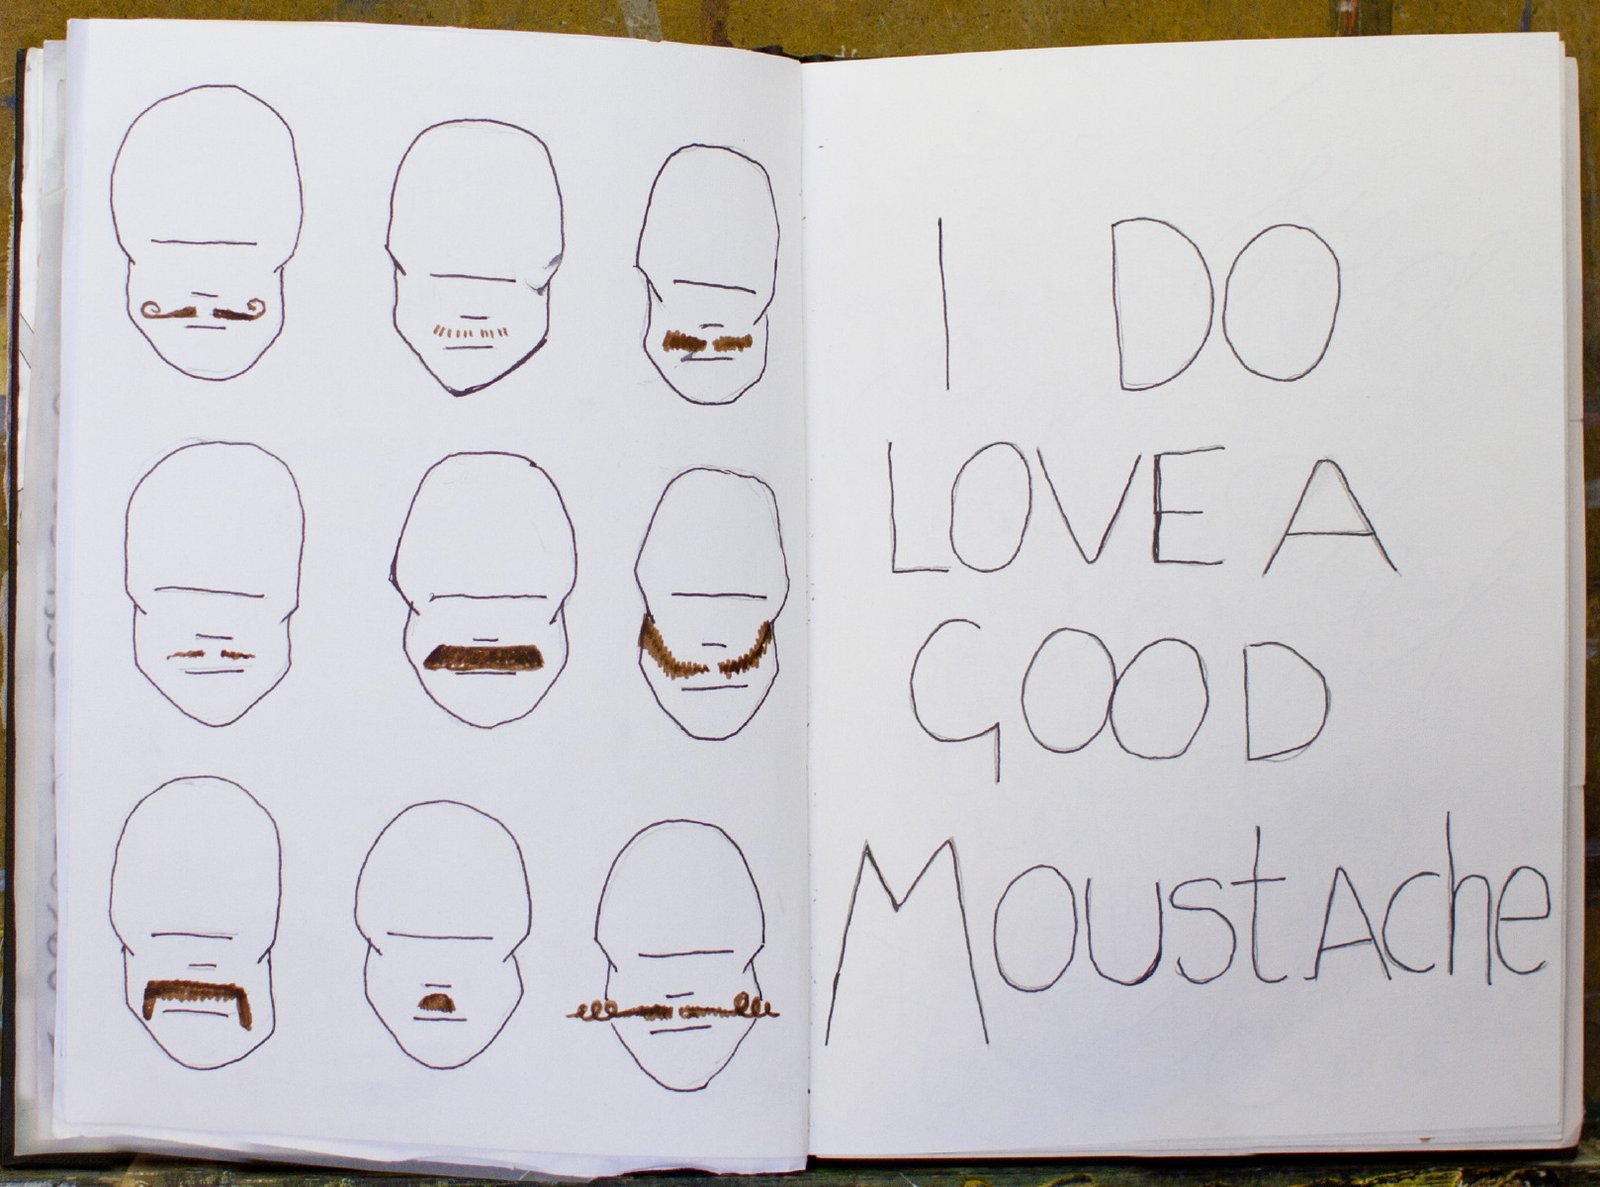 I DO
LOVE A
GOOD
MOUSTACHE